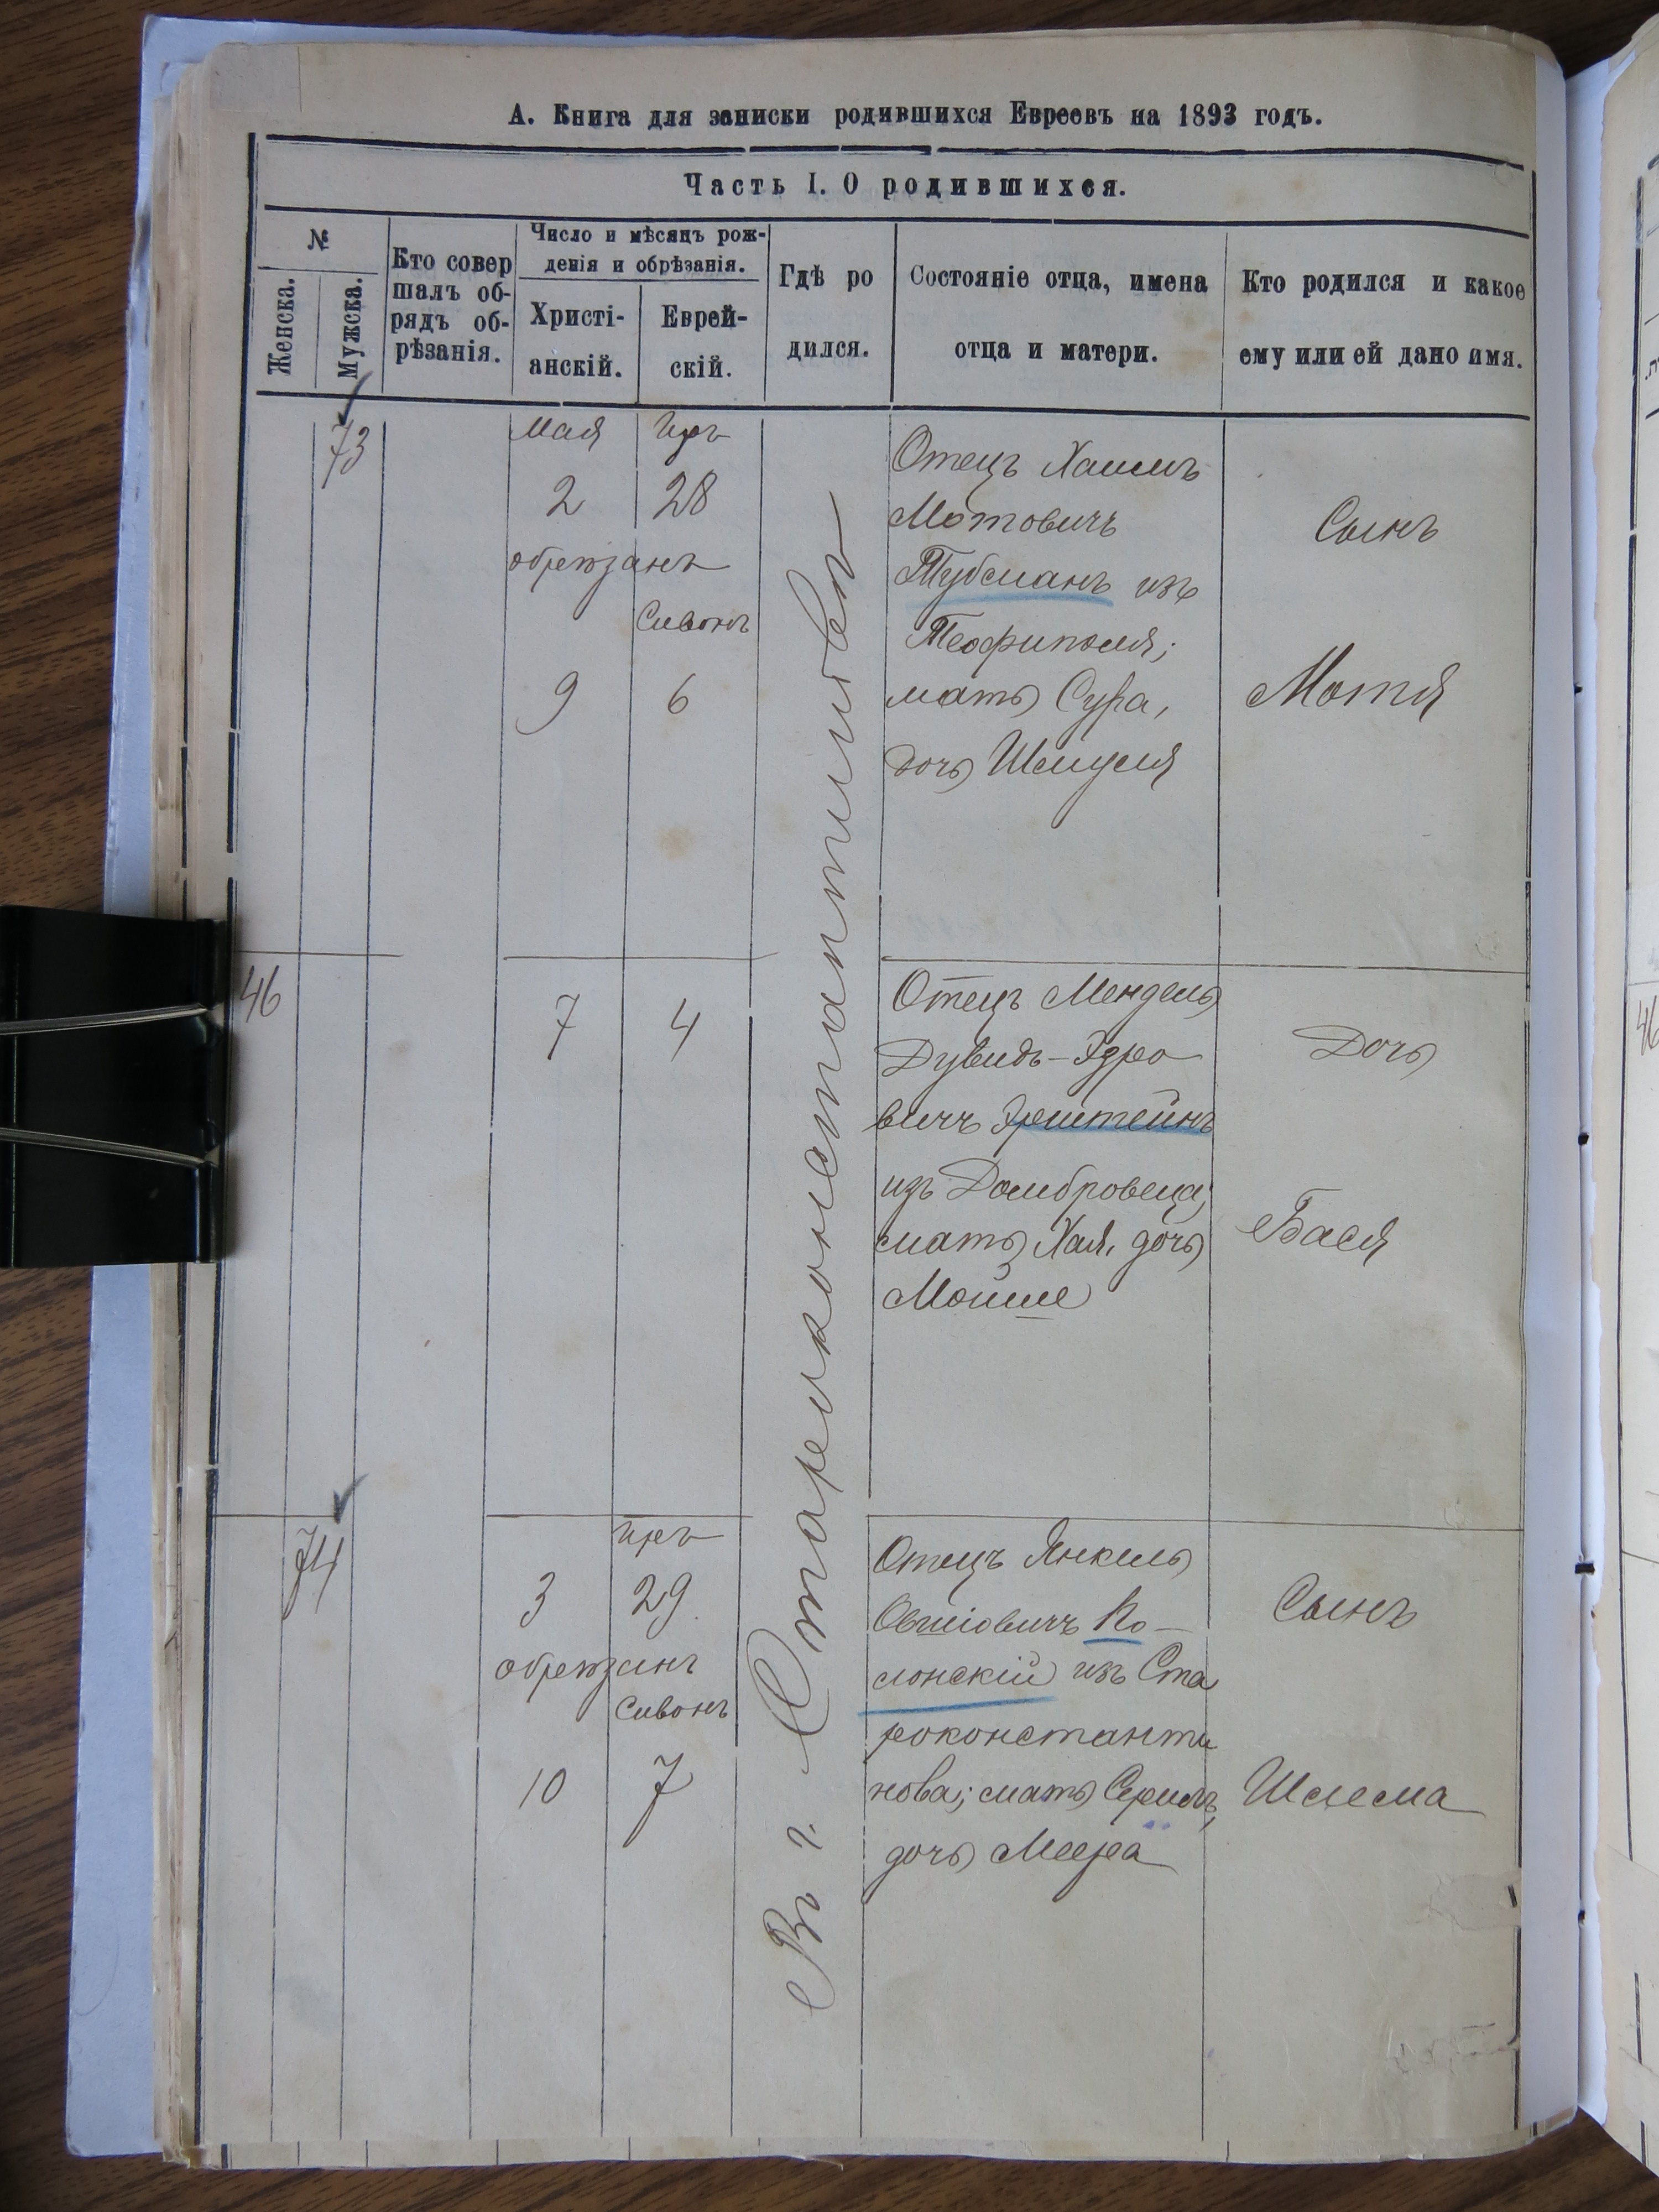 А. Книга для записки родившихся Евреевъ на 1893 годъ.
Часть I. О родившихся.
№
Женска.
Мужска.
Кто совер
шалъ об-
рядъ об-
рѣзанія.
Число и мѣсяцъ рож-
денія и обрѣзанія.
Христі-
анскій.
Еврей-
скій.
Гдѣ ро
дился.
Состояніе отца, имена
отца и матери.
Кто родился и какое
ему или ей дано имя.
73
Мая
Иръ
2
28
обрѣзанъ
Сивонъ
9
6
Въ г. Староконстантиновѣ
Отецъ Хаимъ
Мотовичъ
Тубсманъ изъ
Теофиполя;
мать Сура,
дочь Шмуля
Сынъ
Мотя
46
7
4
Отецъ Мендель
Дувидъ-Эзро
вичъ
изъ Домбровеца;
мать Хая, дочь
Мойше
Дочь
Бася
74
Иръ
3
29
обрѣзанъ
Сивонъ
10
7
Отецъ Янкель
Овшіовичъ Ко-
лонскій изъ Ста
роконстанти
нова; мать
дочь Меера
Сынъ
Шлема
46